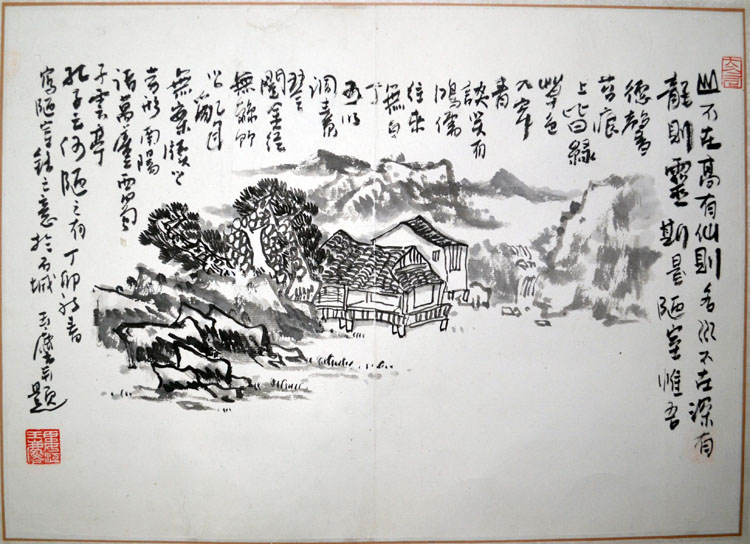 山不在高有仙則名水不在深有
龍則靈斯是陋室惟吾
德馨
苔痕
上階綠
草色
入簾
青
談笑有
鴻儒
往來
無白
丁
可以
調素
琴
閱金經
無絲竹
之亂耳
無案牘之
勞形南陽
諸葛廬西蜀
子雲亭
孔子云何陋之有丁卯新春
寫陋室銘之意於石城 題